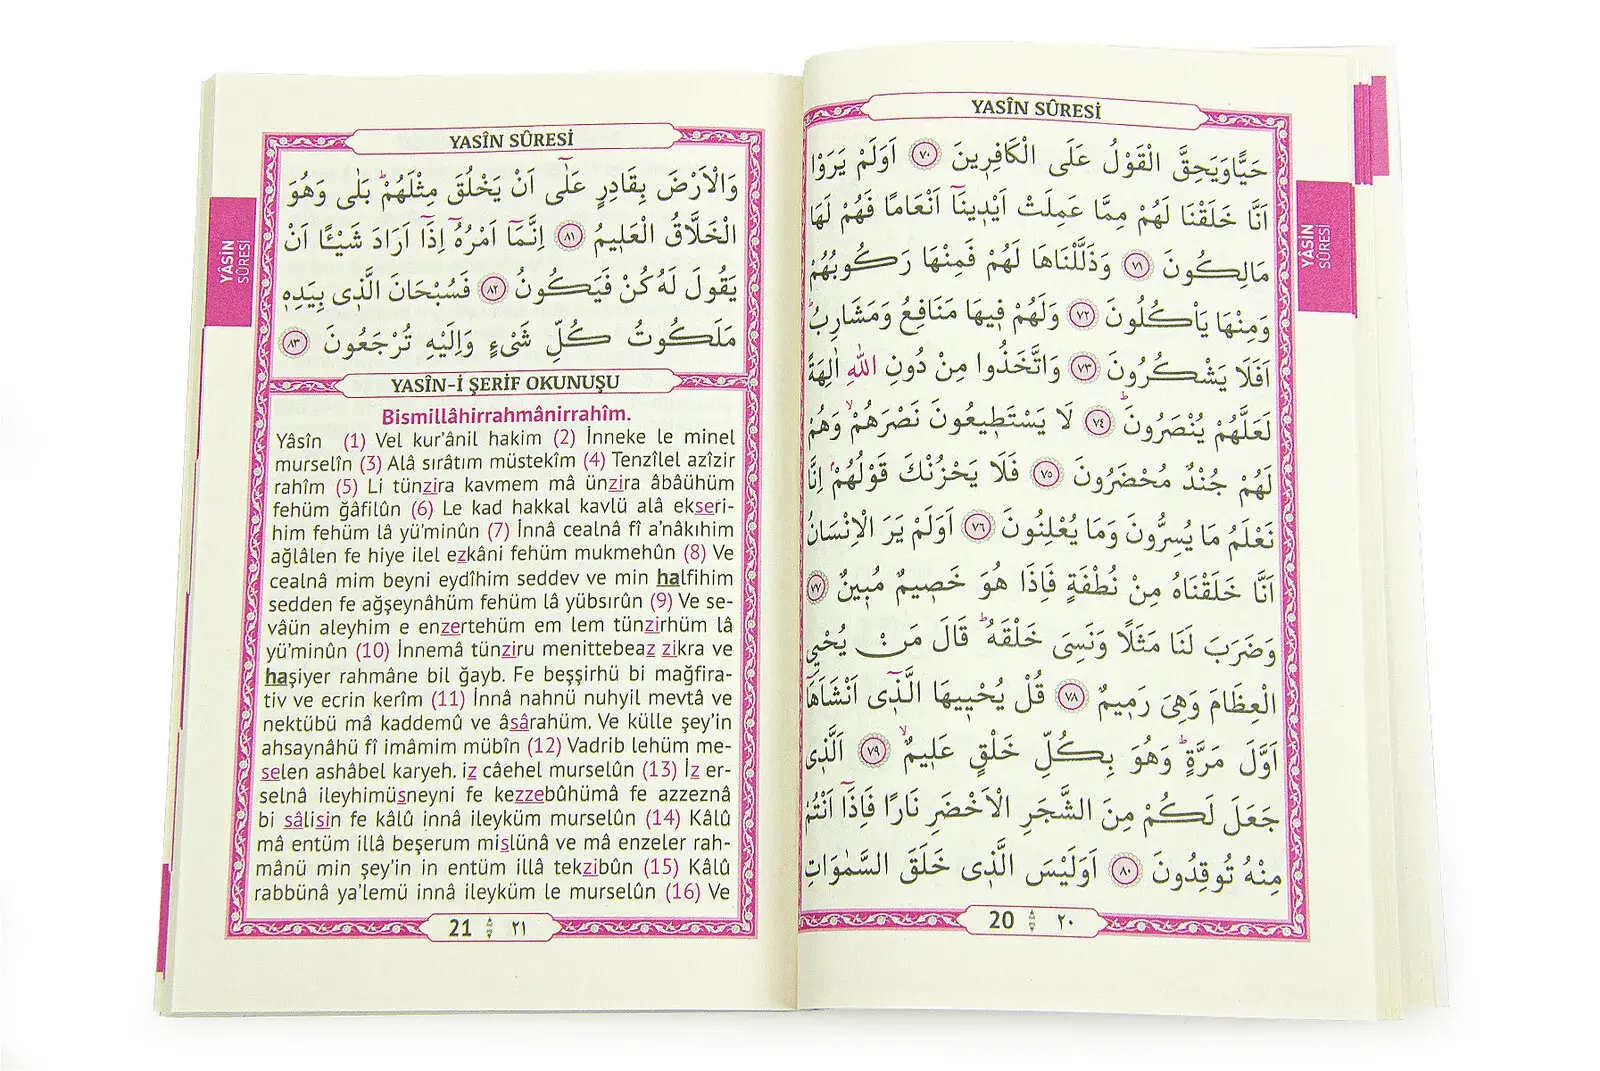 YASÎN SÛRESİ
حَيًّا وَيَحِقَّ الْقَوْلُ عَلَى الْكَافِرِينَ ﴿٧٠﴾ اَوَلَمْ يَرَوْا
اَنَّا خَلَقْنَا لَهُمْ مِمَّا عَمِلَتْ اَيْدِينَٓا اَنْعَامًا فَهُمْ لَهَا
مَالِكُونَ ﴿٧١﴾ وَذَلَّلْنَاهَا لَهُمْ فَمِنْهَا رَكُوبُهُمْ
وَمِنْهَا يَأْكُلُونَ ﴿٧٢﴾ وَلَهُمْ فِيهَا مَنَافِعُ وَمَشَارِبُۜ
اَفَلَا يَشْكُرُونَ ﴿٧٣﴾ وَاتَّخَذُوا مِنْ دُونِ اللّٰهِ اٰلِهَةً
لَعَلَّهُمْ يُنْصَرُونَۜ ﴿٧٤﴾ لَا يَسْتَطِيعُونَ نَصْرَهُمْۙ وَهُمْ
لَهُمْ جُنْدٌ مُحْضَرُونَ ﴿٧٥﴾ فَلَا يَحْزُنْكَ قَوْلُهُمْۢ اِنَّا
نَعْلَمُ مَا يُسِرُّونَ وَمَا يُعْلِنُونَ ﴿٧٦﴾ اَوَلَمْ يَرَ الْاِنْسَانُ
اَنَّا خَلَقْنَاهُ مِنْ نُطْفَةٍ فَاِذَا هُوَ خَصِيمٌ مُبِينٌ ﴿٧٧﴾
وَضَرَبَ لَنَا مَثَلًا وَنَسِيَ خَلْقَهُۜ قَالَ مَنْ يُحْيِ
الْعِظَامَ وَهِيَ رَمِيمٌ ﴿٧٨﴾ قُلْ يُحْيِيهَا الَّذِٓي اَنْشَاَهَٓا
اَوَّلَ مَرَّةٍۜ وَهُوَ بِكُلِّ خَلْقٍ عَلِيمٌۙ ﴿٧٩﴾ اَلَّذِي
جَعَلَ لَكُمْ مِنَ الشَّجَرِ الْاَخْضَرِ نَارًا فَاِذَٓا اَنْتُمْ
مِنْهُ تُوقِدُونَ ﴿٨٠﴾ اَوَلَيْسَ الَّذِي خَلَقَ السَّمٰوَاتِ
20 ٢٠
YÂSİN
SÛRESİ
YASÎN SÛRESİ
وَالْاَرْضَ بِقَادِرٍ عَلٰٓى اَنْ يَخْلُقَ مِثْلَهُمْۜ بَلٰى وَهُوَ
الْخَلَّاقُ الْعَلِيمُ ﴿٨١﴾ اِنَّمَٓا اَمْرُهُٓ اِذَٓا اَرَادَ شَيْـًٔا اَنْ
يَقُولَ لَهُ كُنْ فَيَكُونُ ﴿٨٢﴾ فَسُبْحَانَ الَّذِي بِيَدِهِ
مَلَكُوتُ كُلِّ شَيْءٍ وَاِلَيْهِ تُرْجَعُونَ ﴿٨٣﴾
YASÎN-İ ŞERİF OKUNUŞU
Bismillâhirrahmânirrahîm.
Yâsîn (1) Vel kur’ânil hakim (2) İnneke le minel
murselîn (3) Alâ sırâtım müstekîm (4) Tenzîlel azîzir
rahîm (5) Li tünzira kavmem mâ ünzira âbâühüm
fehüm ğâfilûn (6) Le kad hakkal kavlü alâ ekseri-
him fehüm lâ yü’minûn (7) İnnâ cealnâ fî a’nâkıhim
ağlâlen fe hiye ilel ezkâni fehüm mukmehûn (8) Ve
cealnâ mim beyni eydîhim seddev ve min halfihim
sedden fe ağşeynâhüm fehüm lâ yübsırûn (9) Ve se-
vâün aleyhim e enzertehüm em lem tünzirhüm lâ
yü’minûn (10) İnnemâ tünziru menittebeaz zikra ve
haşiyer rahmâne bil ğayb. Fe beşşirhü bi mağfira-
tiv ve ecrin kerîm (11) İnnâ nahnü nuhyil mevtâ ve
nektübü mâ kaddemû ve âsârahüm. Ve külle şey’in
ahsaynâhü fî imâmim mübîn (12) Vadrib lehüm me-
selen ashâbel karyeh. iz câehel murselûn (13) İz er-
selnâ ileyhimüsneyni fe kezzebûhümâ fe azzeznâ
bi sâlisin fe kâlû innâ ileyküm murselûn (14) Kâlû
mâ entüm illâ beşerum mislünâ ve mâ enzeler rah-
mânü min şey’in in entüm illâ tekzibûn (15) Kâlû
rabbünâ ya’lemü innâ ileyküm le murselûn (16) Ve
21 ٢١
YÂSİN
SÛRESİ